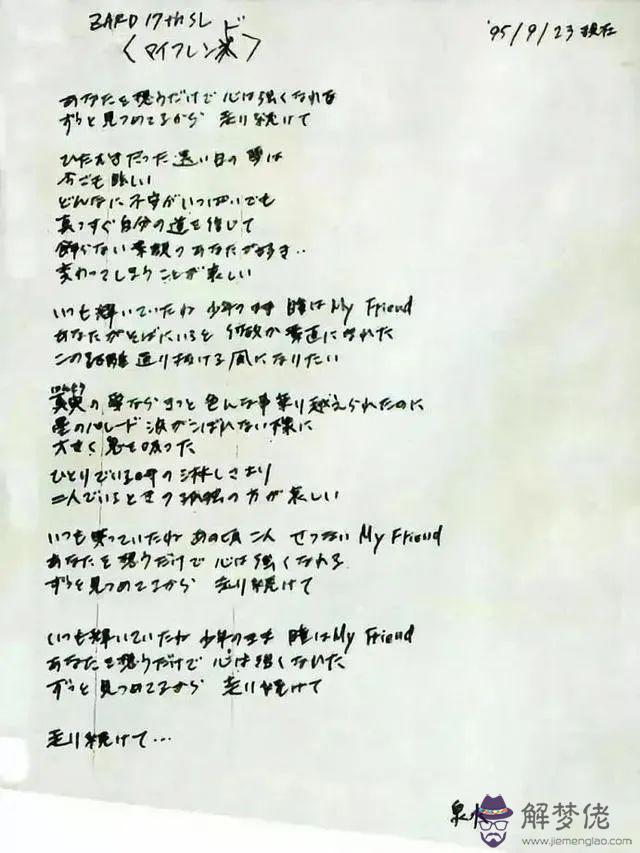 ZARD 17th SL
'95/9/23 現在
〈マイフレンド〉
あなたを想うだけで 心は強くなれる
ずっと見つめてるから 走り続けて
ひたむきだった遠い日の夢は
今でも眩しい
どんなに不安がいっぱいでも
真っすぐ自分の道を信じて
飾らない素顔のあなたが好き..
変わってしまうことが哀しい
いつも輝いていたね 少年のまま 瞳はMy Friend
あなたがそばにいると 何故か素直になれた
この距離通り抜ける風になりたい
真実の夢ならきっと色んな事乗り越えられたのに
星のパレード 涙がこぼれない様に
大きく息を吸った
ひとりでいる時の淋しさより
二人でいるときの孤独の方が哀しい
いつも笑っていたね あの頃二人 せつない My Friend
あなたを想うだけで 心は強くなれる
ずっと見つめてるから 走り続けて
いつも輝いていたね 少年のまま 瞳はMy Friend
あなたを想うだけで 心は強くなれた
ずっと見つめてるから 走り続けて
走り続けて…
泉水
解梦佬
www.jiemenglao.com